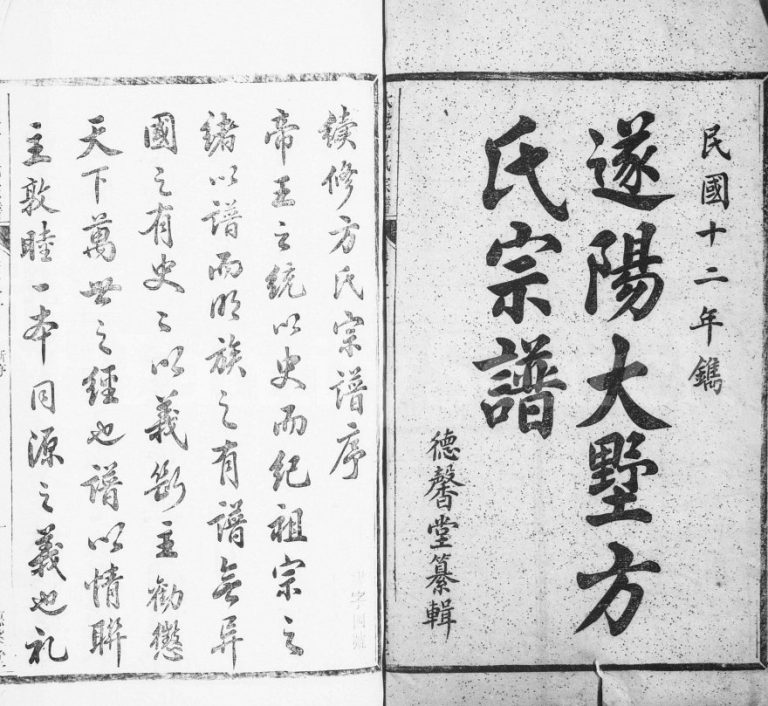 民國十二年鐫
遂陽大墅方
氏宗譜
德馨堂纂輯
續修方氏宗譜序
帝王之統以史而紀祖宗之
緒以譜而明族之有譜無異
國之有史之以義斷主勸懲
天下萬世之經也譜以情聯
主敦睦一本同源之義也礼